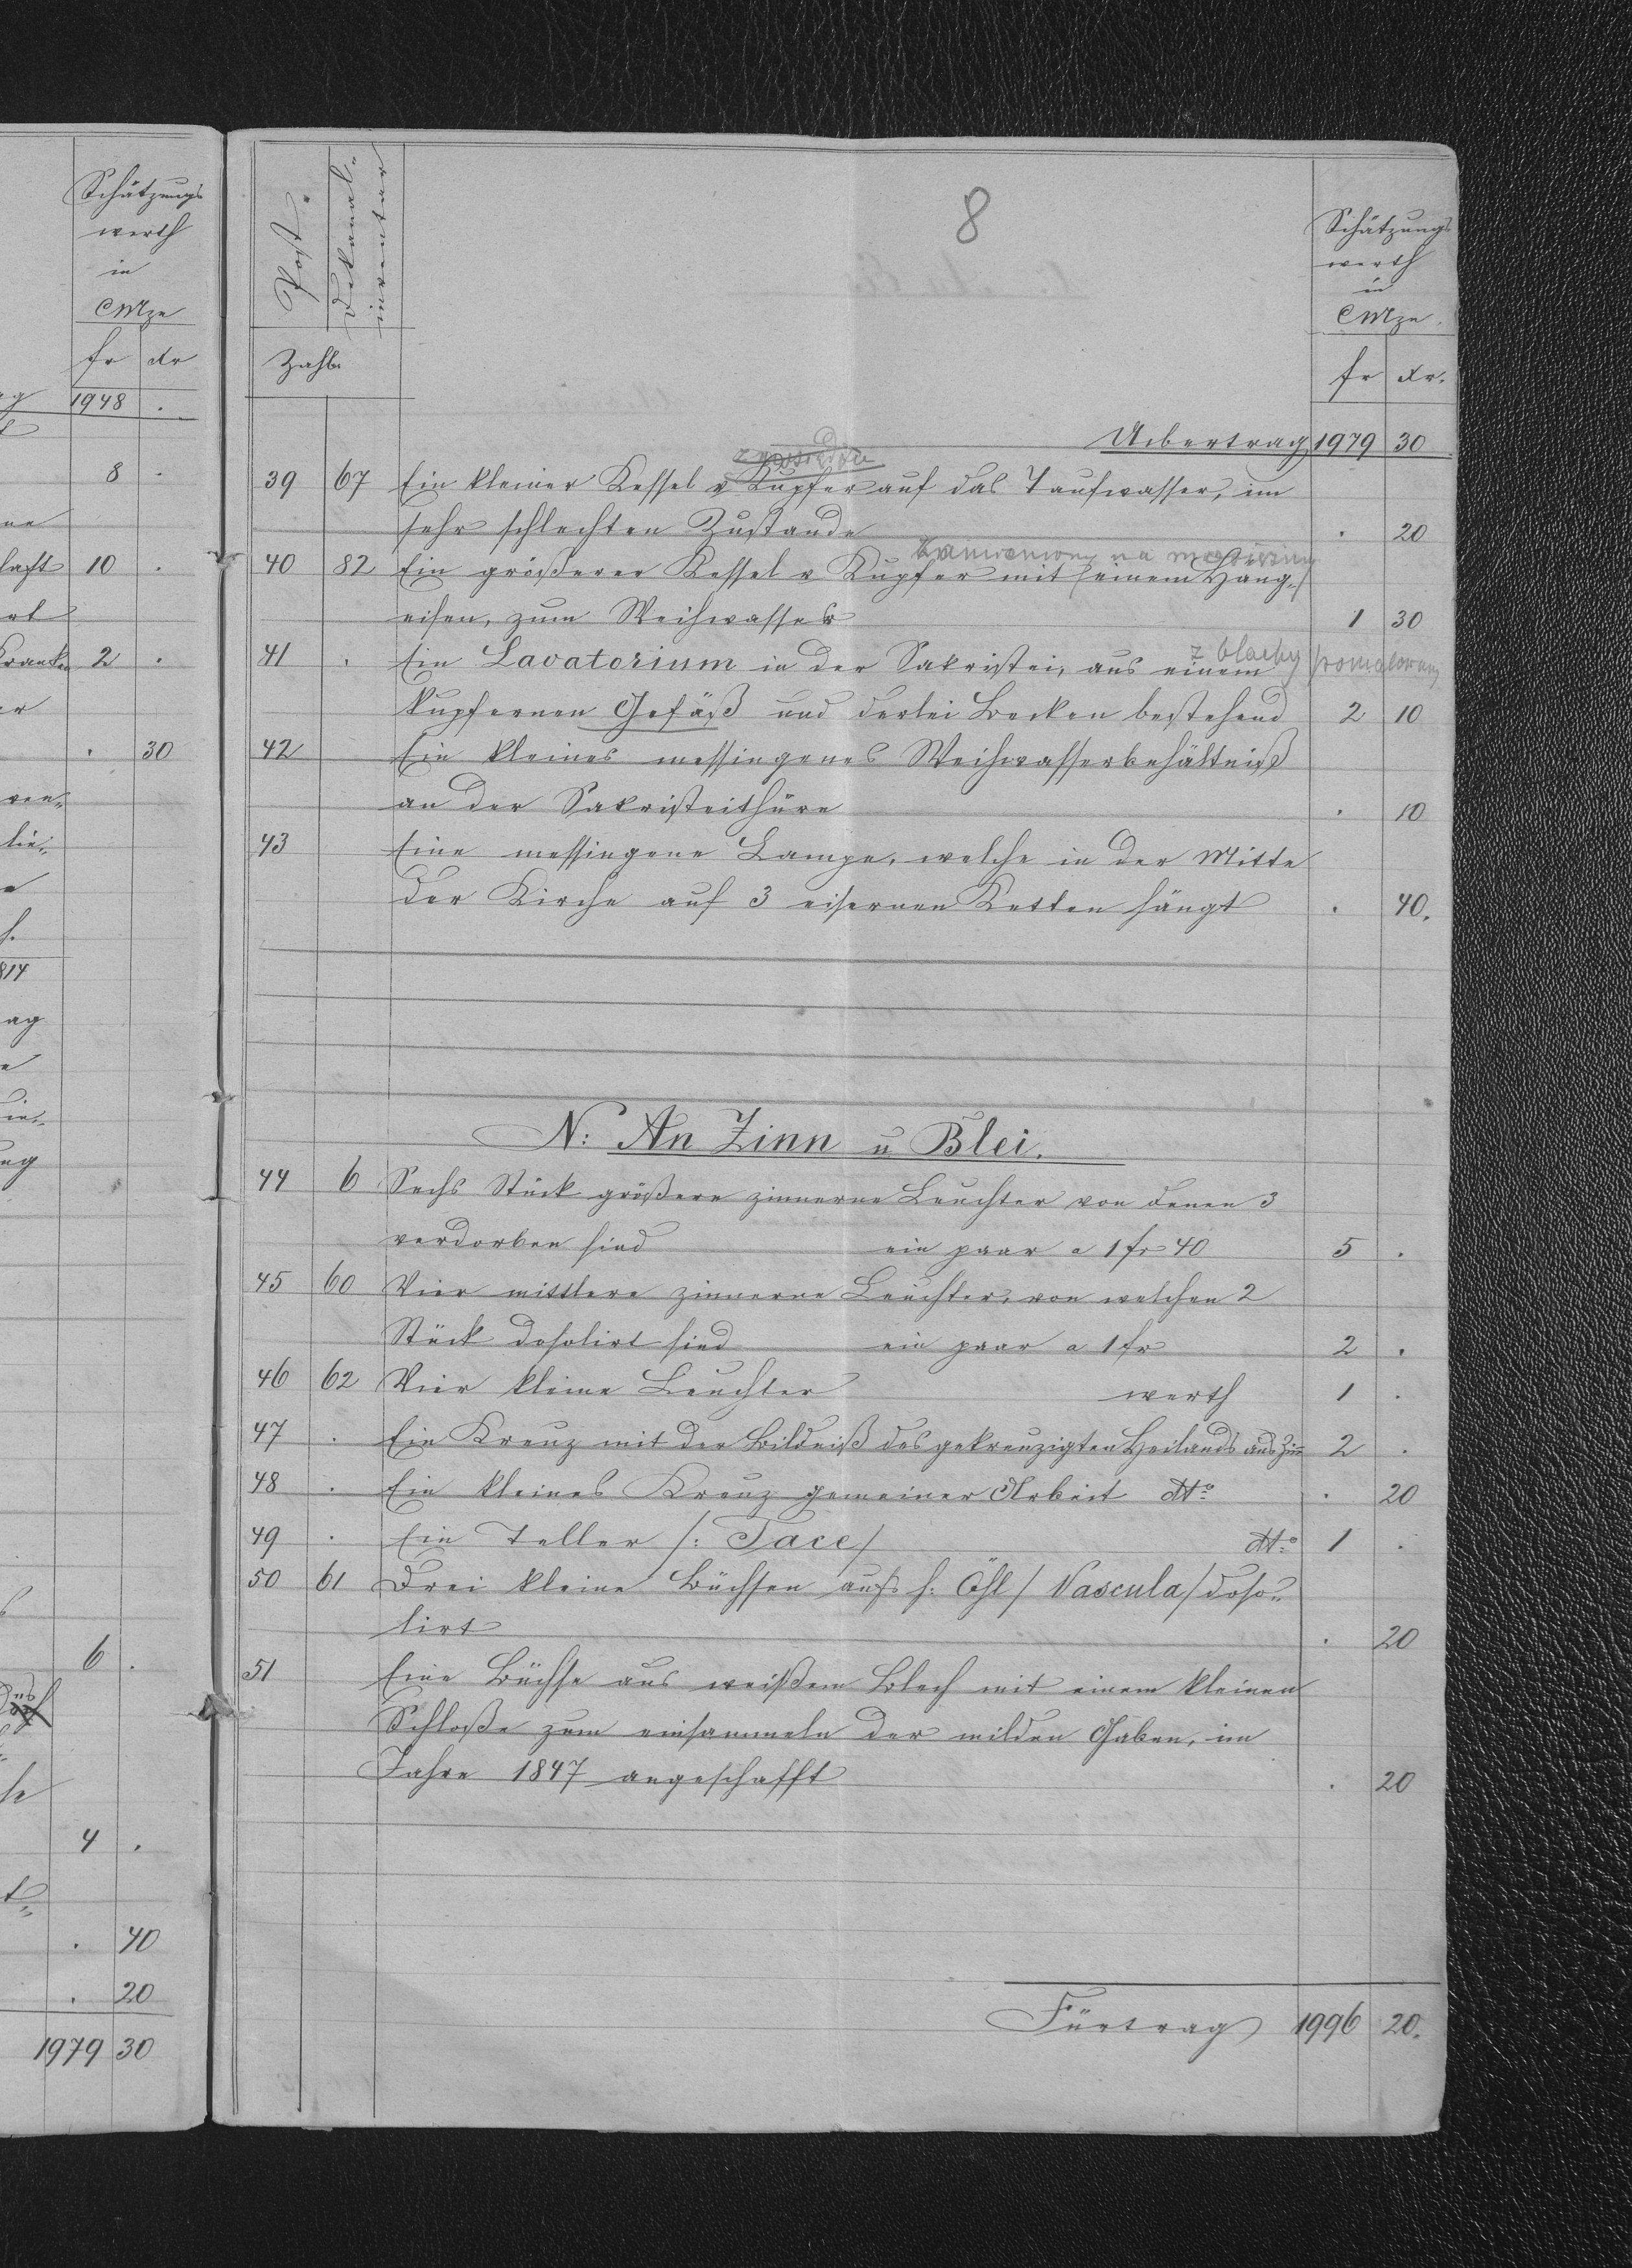 Schätzungs
werth
in
CMze
fr xr
1948 .
8 .
10 .
2 .
. 30
6 .
4 .
. 40
. 20
1979 30
8
Post-
Dekanal-
inventar
Zahl
Schätzungs
werth
in
CMze
fr xr.
Uebertrag 1979 30
39 67 Ein kleiner Kessel v Kupfer auf das Taufwasser, im
sehr schlechten Zustande . 20
40 82 Ein größerer Kessel v Kupfer mit einem Hang-
eisen, zum Weihwasser 1 30
z blachy pomalowany
41 . Ein Lavatorium in der Sakristei, aus einem
kupfernen Gefäß und derlei Becken bestehend 2 10
42 Ein kleines messingenes Weihwasserbehältniß
an der Sakristeithüre . 10
43 Eine messingene Lampe, welche in der Mitte
der Kirche auf 3 eisernen Ketten hängt . 40.
N: An Zinn u Blei.
44 6 Sechs Stück größere zinnerne Leuchter von denen 3
verdorben sind ein paar a 1 fr 40 5 .
45 60 Vier mittlere zinnerne Leuchter, von welchen 2
Stück desolirt sind ein paar a 1 fr 2 .
46 62 Vier kleine Leuchter werth 1 .
47 . Ein Kreuz mit der Bildniß des gekreuzigten Heilands aus Zin 2 .
48 . Ein kleines Kreuz gemeiner Arbeit dtto . 20
49 . Ein Teller /: Tace/ dtto 1 .
50 61 Drei kleine Büchsen aufs h: Öhl / Vascula / deso-
lirt . 20
51 Eine Büchse aus weißem Blech mit einem kleinen
Schloße zum einsammeln der milden Gaben, im
Jahre 1847 angeschafft . 20
Fürtrag 1996 20.